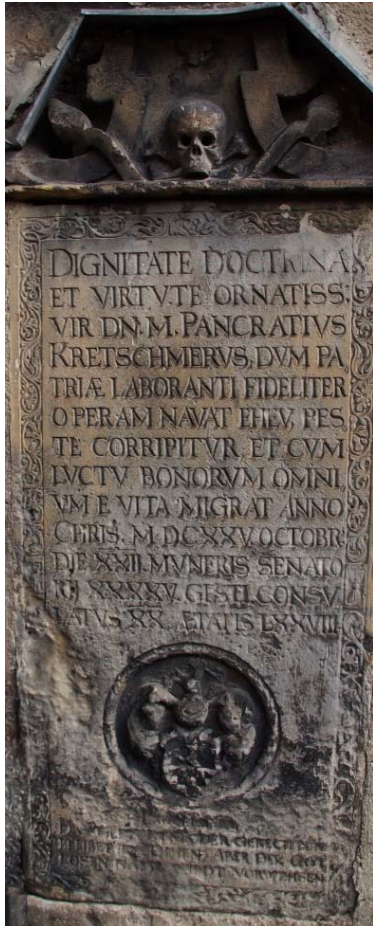 DIGNITATE DOCTRINA
ET VIRTVTE ORNATISS:
VIR DN. M. PANCRATIVS
KRETSCHMERVS, DVM PA
TRIÆ LABORANTI FIDELITER
OPERAM NAVAT EHEV, PES
TE CORRIPITVR ET CVM
LVCTV BONORVM OMNI
VM E VITA MIGRAT ANNO
CHRIS. M. DCXXV. OCTOBR
DIE XXII. MVNERIS SENATO
RII XXXXV. GESTI CONSV
LATVS XX. ETATIS LXXVIII
DER GERECHTEN
ABER DER GOT